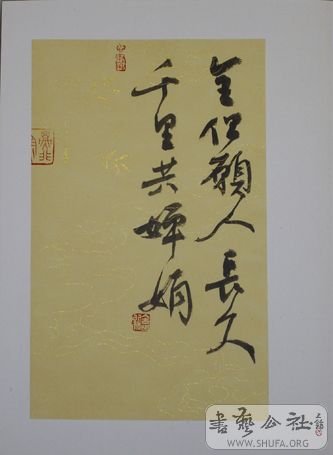 全但願人長久
千里共嬋娟
書藝公社
WWW.SHUFA.ORG